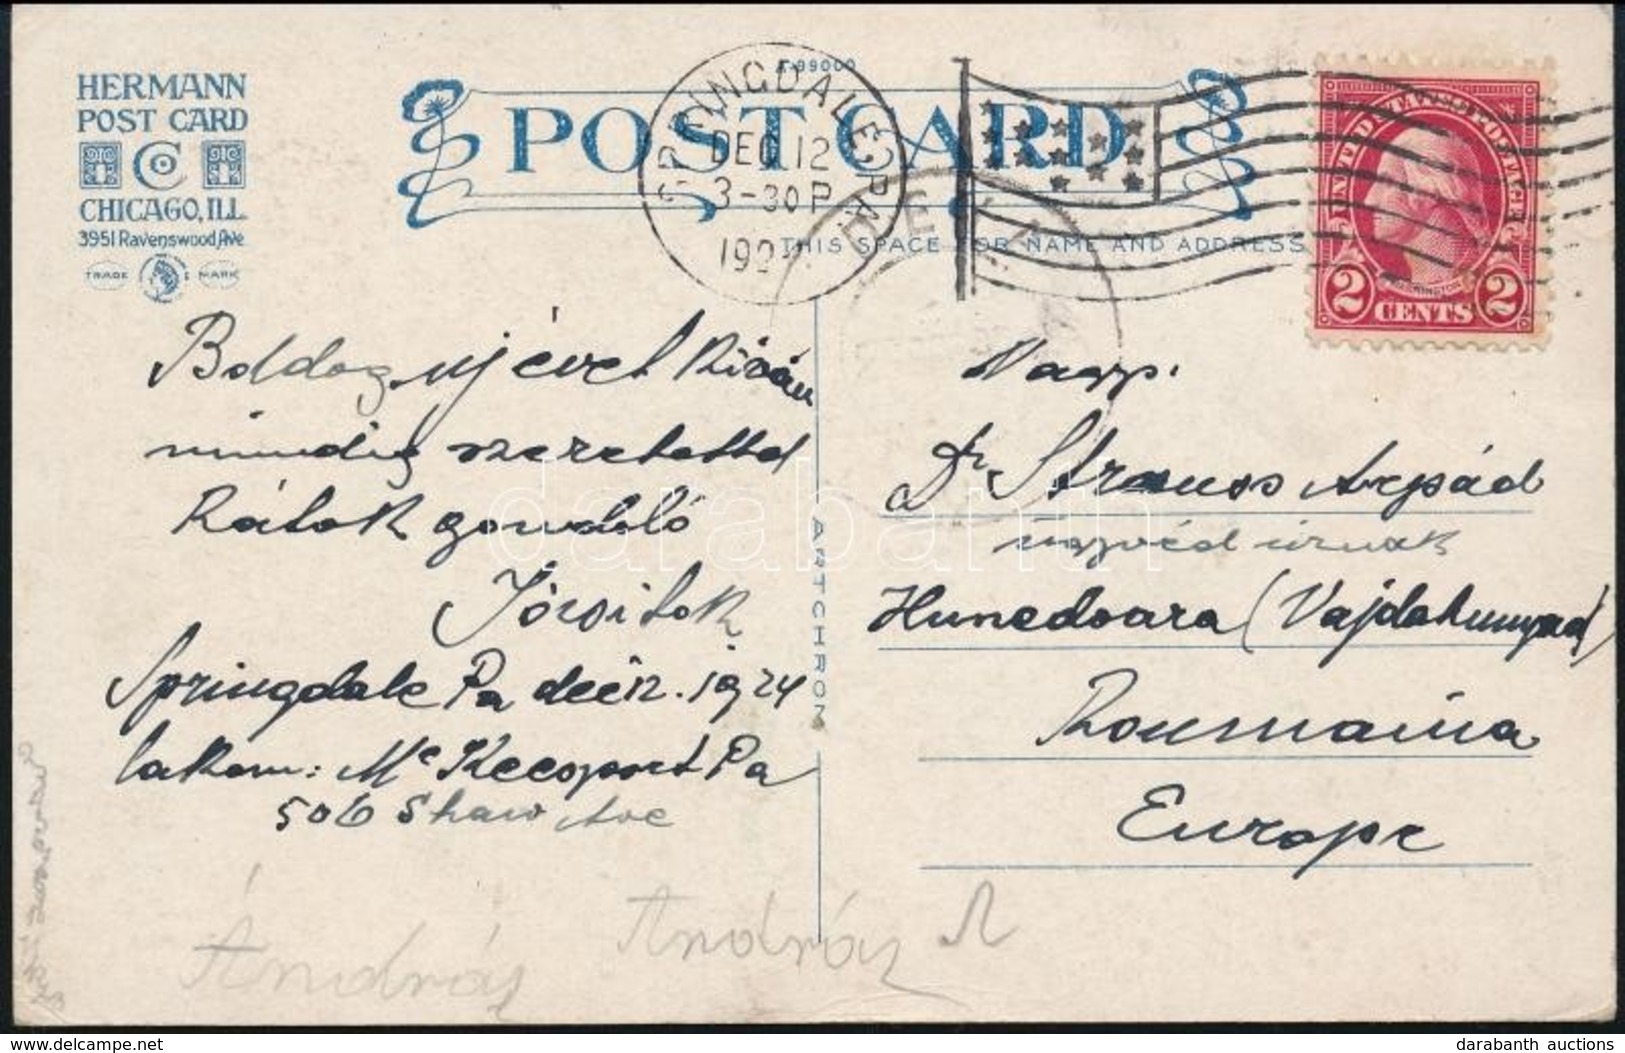 HERMANN
POST CARD
CO
CHICAGO, ILL.
3951 Ravenswood Ave
TRADE MARK
A-99000
POST CARD
SPRINGDALE PA
DEC 12
3-30 P
192
THIS SPACE FOR NAME AND ADDRESS
UNITED STATES POSTAGE
WASHINGTON
2 CENTS 2
Boldog uj évet kiván
mindig szeretettel
Rátok gondoló
Springdale Pa dec 12. 1924
lakom: Mc Keesport Pa
506 Shaw Ave
ARTCHROM
Nagys.
Dr Strauss Arpád
ügyvéd úrnak
Hunedoara (Vajdahunyad)
Roumania
Europe
András
András
darabanth
darabanth auctions